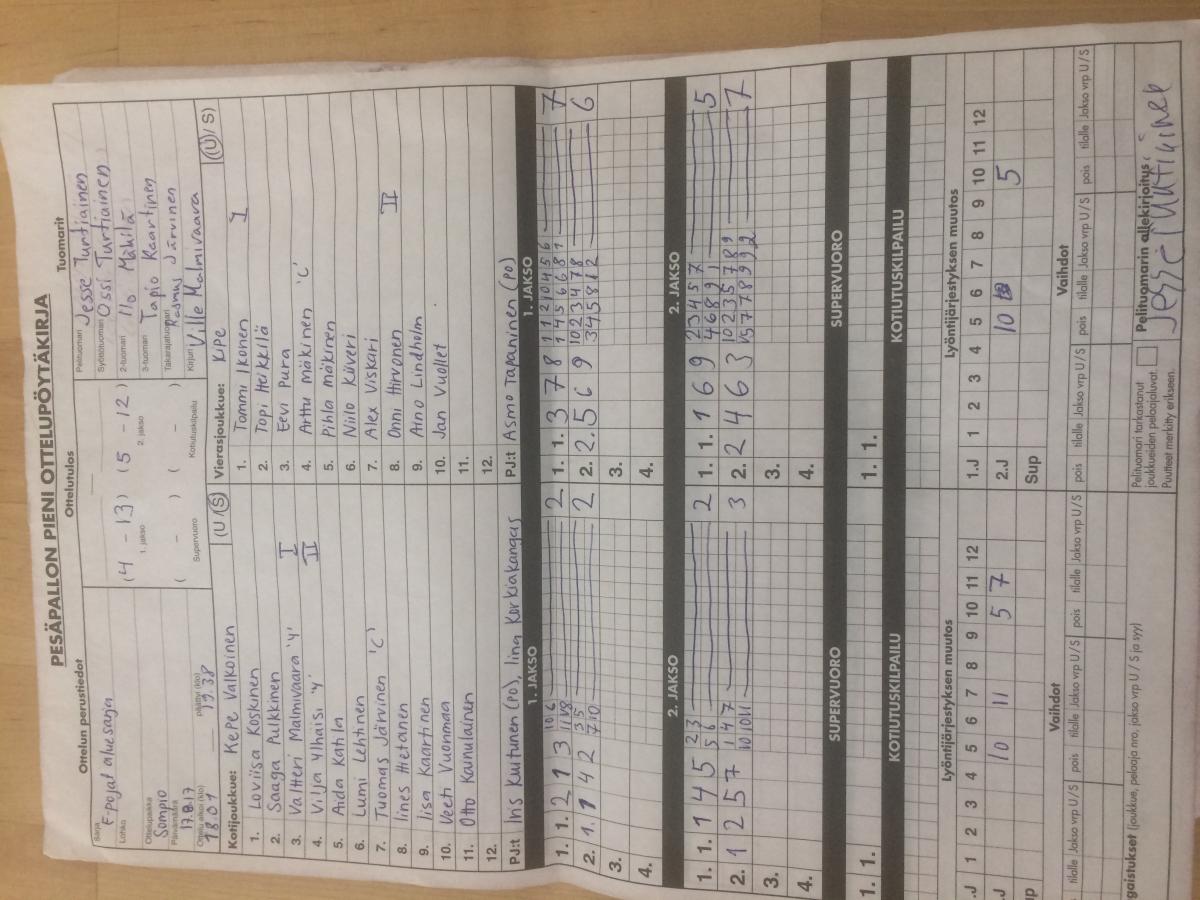 PESÄPALLON PIENI OTTELUPÖYTÄKIRJA
Ottelun perustiedot
Ottelutulos
Tuomarit
Sarja
F-pojat aluesarja
Lohko
Ottelupaikka
Sompio
Päivämäärä
17.8.17
Ottelu alkoi (klo)
18.01
päättyi (klo)
19.38
(4 - 13) (5 - 12)
1. jakso
2. jakso
( - ) ( - )
Supervuoro
Kotiutuskilpailu
Pelituomari Jesse Turtiainen
Syöttötuomari Ossi Turtiainen
2-tuomari Ilo Mäkilä
3-tuomari Tapio Kaartinen
Takarajatuomari Rasmus Järvinen
Kirjuri Ville Malmivaara
Kotijoukkue: KePe Valkoinen (U/S)
1. Loviisa Koskinen
2. Saaga Pulkkinen
3. Valtteri Malmivaara 'Y' I
4. Vilja Ylhäisi 'Y' II
5. Aida Katila
6. Lumi Lehtinen
7. Tuomas Järvinen 'C'
8. Iines Hietanen
9. Iisa Kaartinen
10. Veeti Vuonmaa
11. Otto Kaunulainen
12.
PJ:t Iris Kuitunen (PO), Iina Korkiakangas
Vierasjoukkue: KiPe (U/S)
1. Tommi Ikonen I
2. Topi Heikkilä
3. Eevi Pura
4. Arttu Mäkinen 'C'
5. Pihla Mäkinen
6. Niilo Kiiveri
7. Alex Viskari
8. Onni Hirvonen II
9. Aino Lindholm
10. Jan Vuollet
11.
12.
PJ:t Asmo Tapaninen (PO)
1. JAKSO
1. JAKSO
1. 1. 2 1 3 10 6 2
11 8
2. 1. 1 4 2 3 5 2
7 10
3.
4.
1. 1. 3 7 8 1 1 2 10 4 5 6 7
1 4 5 6 6 8 1
2. 2. 5 6 9 10 2 3 4 7 8 6
3 4 5 8 1 2
3.
4.
2. JAKSO
2. JAKSO
1. 1. 1 4 5 2 3 2
5 6
2. 1 2 5 7 1 4 7 3
10 10 11
3.
4.
1. 1. 1 6 9 2 3 4 5 7 5
4 6 8 9 1
2. 2 4 6 3 10 2 3 5 7 8 9 7
3.
4.
SUPERVUORO
SUPERVUORO
1. 1.
1. 1.
KOTIUTUSKILPAILU
KOTIUTUSKILPAILU
Lyöntijärjestyksen muutos
Lyöntijärjestyksen muutos
.J 1 2 3 4 5 6 7 8 9 10 11 12
.J 10 11 5 7
up
1.J 1 2 3 4 5 6 7 8 9 10 11 12
2.J 10 5
Sup
Vaihdot
Vaihdot
tilalle Jakso vrp U/S pois tilalle Jakso vrp U/S pois tilalle Jakso vrp U/S
pois tilalle Jakso vrp U/S pois tilalle Jakso vrp U/S pois tilalle Jakso vrp U/S
gaistukset (joukkue, pelaaja nro, jakso vrp U / S ja syy)
Pelituomari tarkastanut
joukkueiden pelaajaluvat.
Puutteet merkitty erikseen.
Pelituomarin allekirjoitus:
Jesse Turtiainen